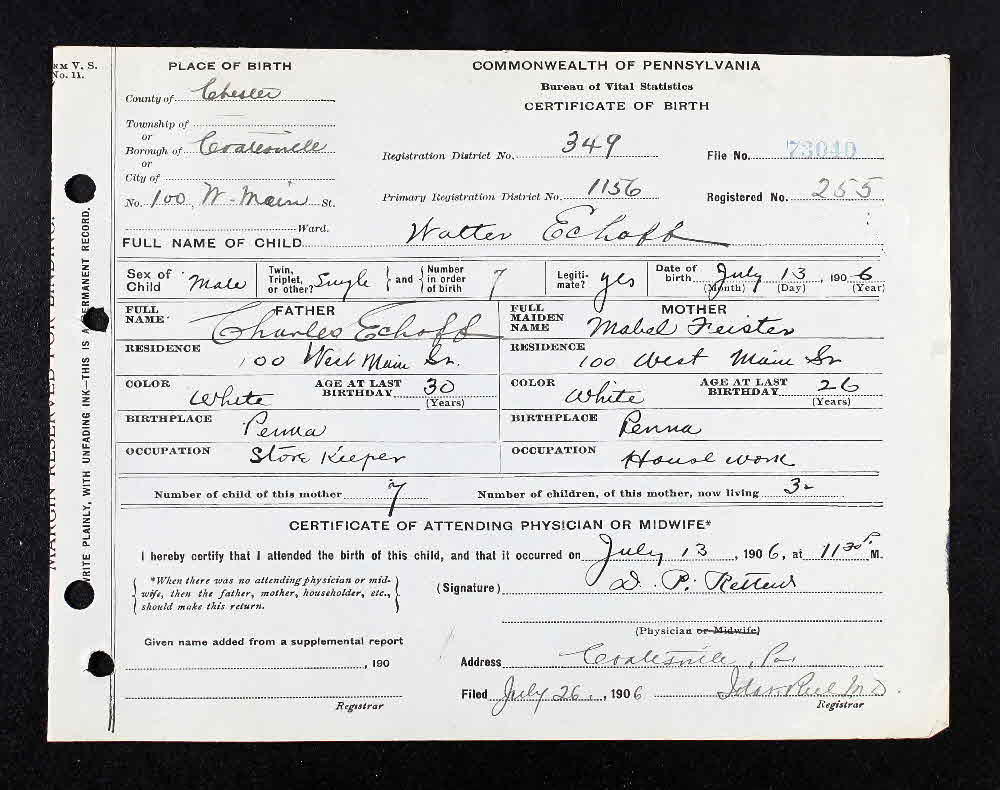 RM V. S.
No. 11.
MARGIN RESERVED FOR BINDING.
WRITE PLAINLY, WITH UNFADING INK—THIS IS A PERMANENT RECORD.
PLACE OF BIRTH
County of Chester
Township of
or
Borough of Coatesville
or
City of
No. 100 W-Main St.
Ward.
COMMONWEALTH OF PENNSYLVANIA
Bureau of Vital Statistics
CERTIFICATE OF BIRTH
Registration District No. 349
File No. 73040
Primary Registration District No. 1156
Registered No. 255
FULL NAME OF CHILD Walter Echoff
Sex of Child Male
Twin, Triplet, or other? Single and Number in order of birth 7
Legiti-mate? yes
Date of birth July 13, 1906
(Month) (Day) (Year)
FATHER
FULL NAME Charles Echoff
RESIDENCE 100 West Main St.
COLOR White
AGE AT LAST BIRTHDAY 30 (Years)
BIRTHPLACE Penna
OCCUPATION Store Keeper
MOTHER
FULL MAIDEN NAME Mabel Feister
RESIDENCE 100 West Main St
COLOR White
AGE AT LAST BIRTHDAY 26 (Years)
BIRTHPLACE Penna
OCCUPATION House work
Number of child of this mother 7
Number of children, of this mother, now living 3
CERTIFICATE OF ATTENDING PHYSICIAN OR MIDWIFE*
I hereby certify that I attended the birth of this child, and that it occurred on July 13, 1906, at 11 30 P. M.
*When there was no attending physician or mid-
wife, then the father, mother, householder, etc.,
should make this return.
(Signature) D. P. Rettew
(Physician or Midwife)
Given name added from a supplemental report
, 190
Registrar
Address Coatesville, Pa.
Filed July 26, 1906 M.D.
Registrar